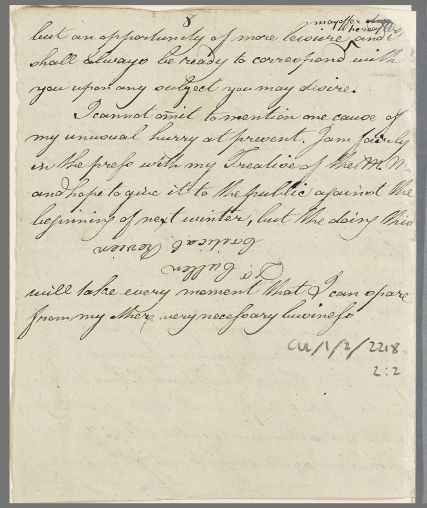 8
may offer
but an opportunity of more leisure hereafter and I
shall always be ready to correspond with
you upon any subject you may desire.
I cannot omit to mention one cause of
my unusual hurry at present. I am fairly
in the press with my Treatise of the M. M.
and hope to give it to the public against the
beginning of next winter, but the doing this
Critical Review
Dr Cullen
will take every moment that I can spare
from my other very necessary business
CUL/1/2/2218
2:2